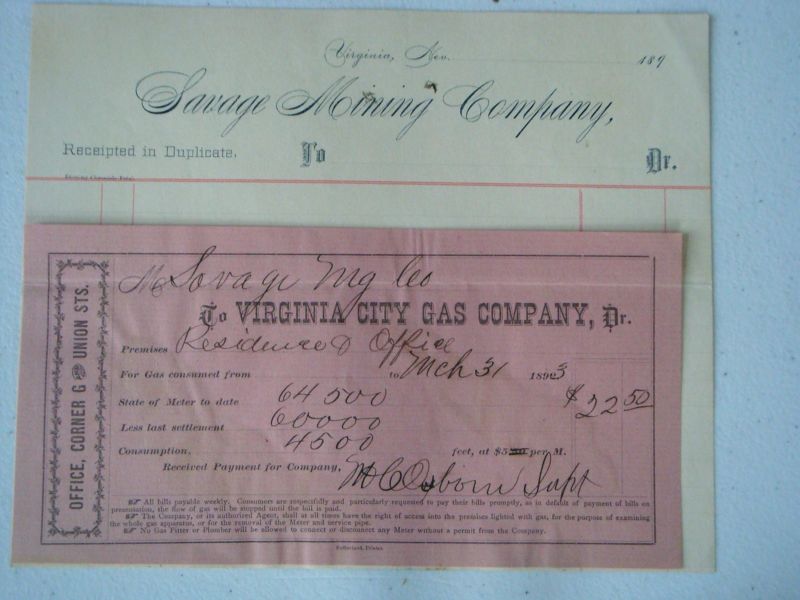 Virginia, Nev. 189
Savage Mining Company,
Receipted in Duplicate. To Dr.
OFFICE, CORNER G AND UNION STS.
M Savage Mg Co
To VIRGINIA CITY GAS COMPANY, Dr.
Premises Residence & Office
For Gas consumed from to Mch 31 1893
State of Meter to date 64 500 $22 50
Less last settlement 60000
Consumption. 4500 feet, at $5 per M.
Received Payment for Company, M C Osborn Supt
All bills payable weekly. Consumers are respectfully and particularly requested to pay their bills promptly, as in default of payment of bills on
presentation, the flow of gas will be stopped until the bill is paid.
The Company, or its authorized Agent, shall at all times have the right of access into the premises lighted with gas, for the purpose of examining
the whole gas apparatus, or for the removal of the Meter and service pipe.
No Gas Fitter or Plumber will be allowed to connect or disconnect any Meter without a permit from the Company.